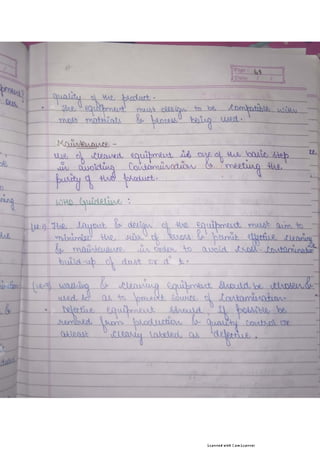 Page 61
Date
quality of the product.
• The equipment must design to be compatible with
most materials & process being used.
Maintenance -
Use of cleaned equipment is one of the basic step
in avoiding contamination & meeting the
purity of the product.
WHO Guideline :
The layout & design of the equipment must aim to
minimize the risk of errors & permit effective cleaning
& maintenance in order to avoid cross-contamination
build-up of dust or d
washing & cleaning equipment should be chosen &
used so as to source of contamination.
• Defective equipment should if possible be
removed from production & quality control or
atleast clearly labeled as defective.
Scanned with CamScanner